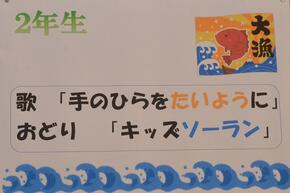 2年生
大漁
歌 「手のひらをたいように」
おどり 「キッズソーラン」